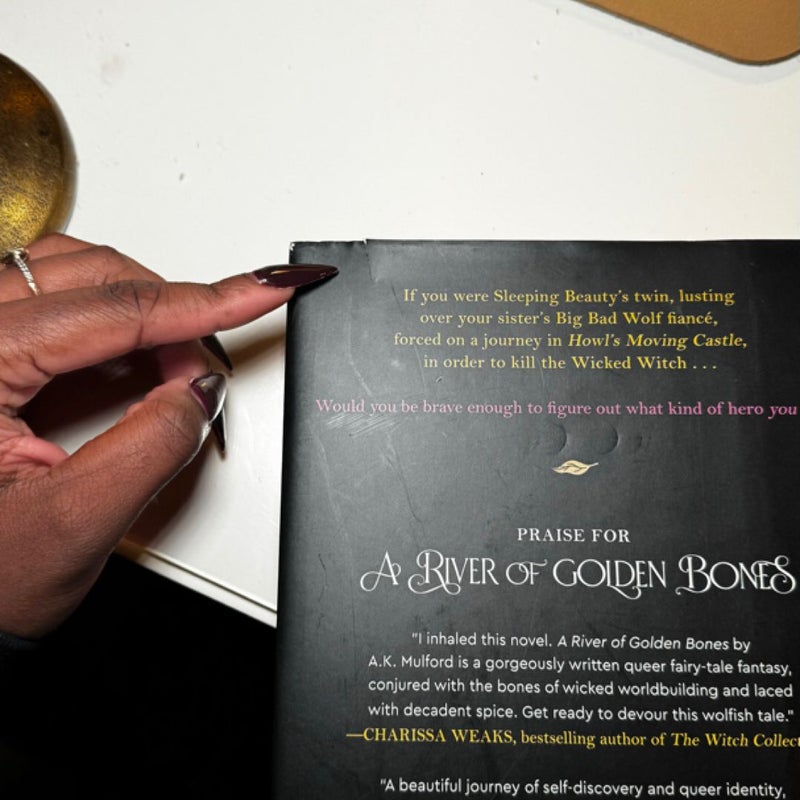 If you were Sleeping Beauty's twin, lusting
over your sister's Big Bad Wolf fiancé,
forced on a journey in Howl's Moving Castle,
in order to kill the Wicked Witch . . .
Would you be brave enough to figure out what kind of hero you
PRAISE FOR
A RIVER OF GOLDEN BONES
"I inhaled this novel. A River of Golden Bones by
A.K. Mulford is a gorgeously written queer fairy-tale fantasy,
conjured with the bones of wicked worldbuilding and laced
with decadent spice. Get ready to devour this wolfish tale."
—CHARISSA WEAKS, bestselling author of The Witch Collec
"A beautiful journey of self-discovery and queer identity,